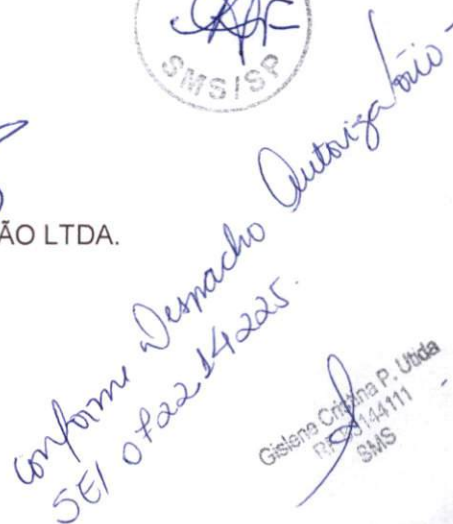 SMS/SP
ÃO LTDA.
conforme Despacho Autorizatório -
SEI 072214225.
Gislene Cristina P. Utida
SMS